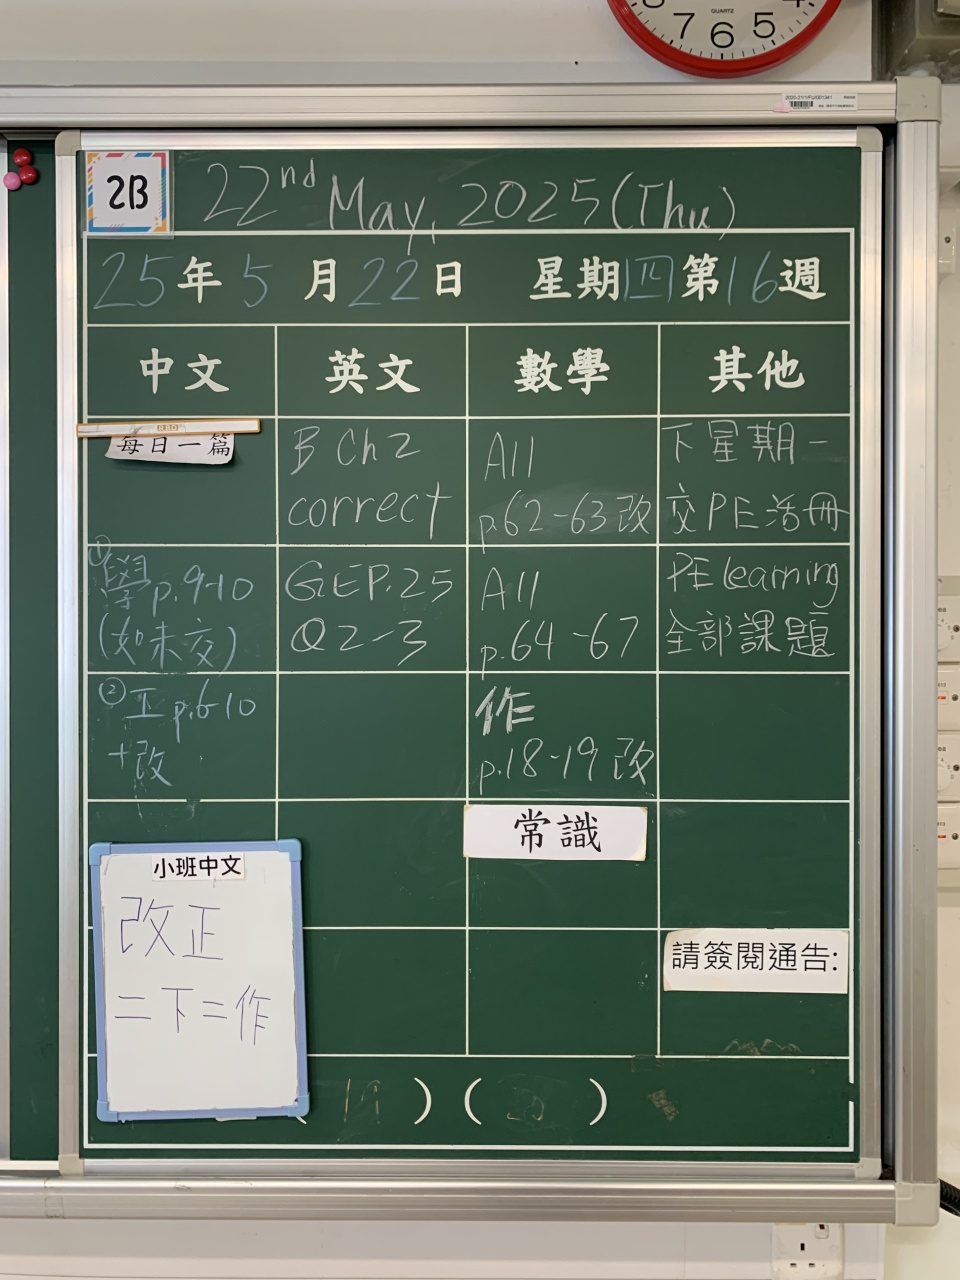 7 6 5
QUARTZ
2B
22nd May, 2025 (Thu)
25年5月22日 星期四第16週
中文 英文 數學 其他
每日一篇
① 學p.9-10
(如未交)
② 正p.6-10
+改
小班中文
改正
二下二作
B Ch2
correct
GEP.25
Q2-3
All
p.62-63改
All
p.64-67
作
p.18-19改
常識
下星期一
交PE活冊
PE learning
全部課題
請簽閱通告:
( 19 ) ( )